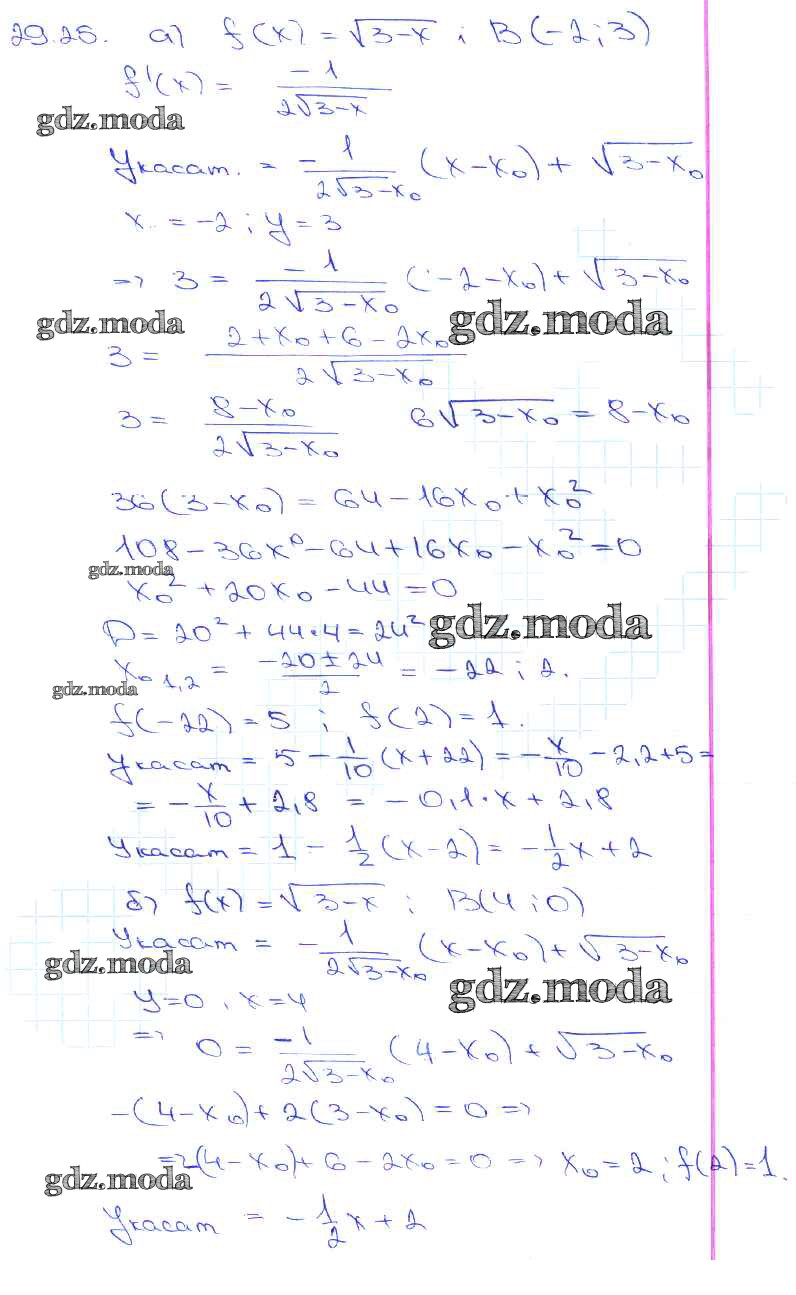 29.25. а) f(x) = √3-x ; B(-2;3)
f'(x) = -1/(2√3-x)
gdz.moda
Yкасат. = -1/(2√3-x₀) (x-x₀) + √3-x₀
x = -2 ; y = 3
=> 3 = -1/(2√3-x₀) (-2-x₀) + √3-x₀
gdz.moda gdz.moda
3 = (2+x₀+6-2x₀)/(2√3-x₀)
3 = (8-x₀)/(2√3-x₀) 6√3-x₀ = 8-x₀
36(3-x₀) = 64-16x₀+x₀²
108-36x⁰-64+16x₀-x₀²=0
gdz.moda
x₀²+20x₀-44=0
D=20²+44·4=24² gdz.moda
x₀ 1,2 = (-20±24)/2 = -22 ; 2.
gdz.moda
f(-22)=5 ; f(2)=1.
Yкасат = 5 - 1/10 (x+22) = -x/10 - 2,2+5=
= -x/10 + 2,8 = -0,1·x+2,8
Yкасат = 1 - 1/2 (x-2) = -1/2 x+2
б) f(x)=√3-x ; B(4;0)
Yкасат = -1/(2√3-x₀) (x-x₀)+√3-x₀
gdz.moda gdz.moda
y=0, x=4
=> 0 = -1/(2√3-x₀) (4-x₀) + √3-x₀
-(4-x₀)+2(3-x₀)=0 =>
=>-(4-x₀)+6-2x₀=0 => x₀=2 ; f(2)=1.
gdz.moda
Yкасат = -1/2 x+2